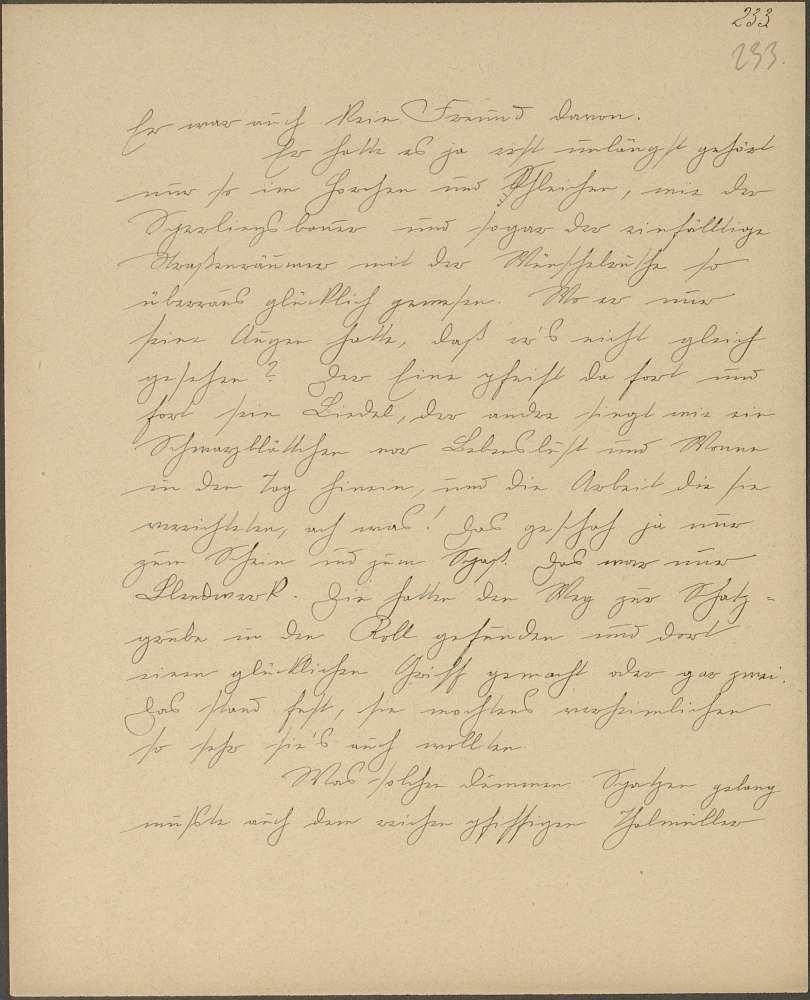 233
233.
Er war auch kein Freund davon.
Er hatte es ja erst unlängst gehört
nur so im Horchen und Schleichen, wie der
Sperlingsbauer und sogar der einfälltige
Straßenräumer mit der Wünschelruthe so
überraus glücklich gewesen. Wo er nur
seine Augen hatte, daß er's nicht gleich
gesehen? Der Eine pfeift da fort und
fort sein Liedel, der andre singt wie ein
Schwarzblättchen vor Lebenslust und Wonne
in den Tag hinein, und die Arbeit die sie
verrichteten, ach was! Das geschah ja nur
zum Schein und zum Spaß. Das war nur
Blendwerk. Die hatten den Weg zur Schatz-
grube in den Koll gefunden und dort
einen glücklichen Griff gemacht oder gar zwei.
Das stand fest, sie mochtens verheimlichen
so sehr sie's auch wollten
Was solchen dummen Spatzen gelang
mußte auch dem reichen pfiffigen Thalmüller